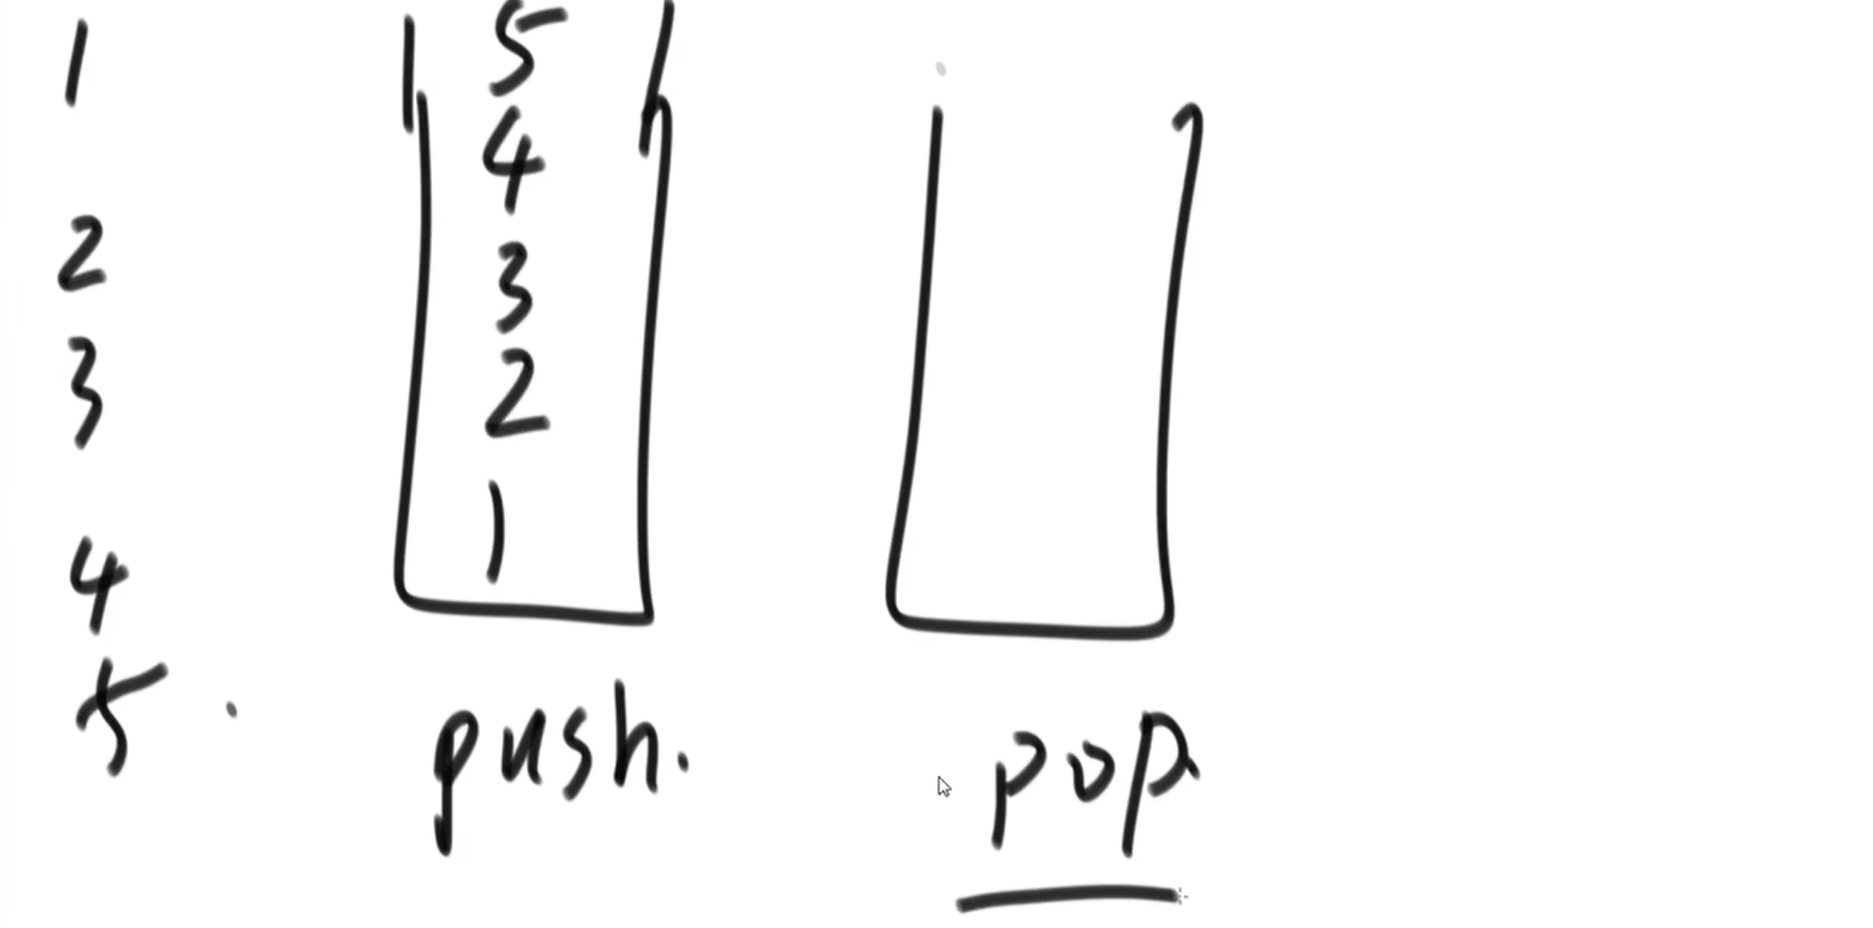 1
2
3
4
5
5
4
3
2
1
push.
pop